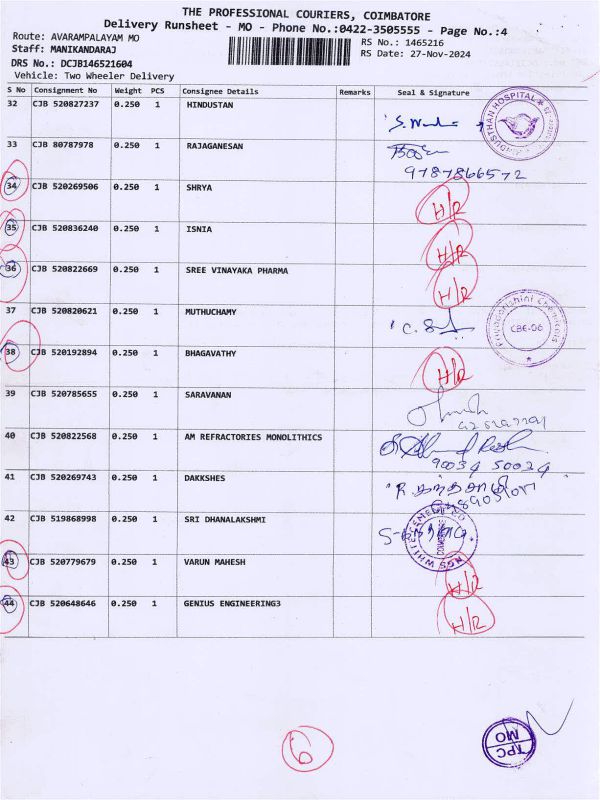 THE PROFESSIONAL COURIERS, COIMBATORE
Delivery Runsheet - MO - Phone No.:0422-3505555 - Page No.:4
Route: AVARAMPALAYAM MO RS No.: 1465216
Staff: MANIKANDARAJ RS Date: 27-Nov-2024
DRS No.: DCJB146521604
Vehicle: Two Wheeler Delivery
S No Consignment No Weight PCS Consignee Details Remarks Seal & Signature
32 CJB 520827237 0.250 1 HINDUSTAN
HINDUSTHAN HOSPITAL
33 CJB 80787978 0.250 1 RAJAGANESAN
9787866572
34 CJB 520269506 0.250 1 SHRYA H/R
35 CJB 520836240 0.250 1 ISNIA H/R
36 CJB 520822669 0.250 1 SREE VINAYAKA PHARMA H/R
37 CJB 520820621 0.250 1 MUTHUCHAMY
CBE-06
38 CJB 520192894 0.250 1 BHAGAVATHY H/R
39 CJB 520785655 0.250 1 SARAVANAN
40 CJB 520822568 0.250 1 AM REFRACTORIES MONOLITHICS
90034 50024
41 CJB 520269743 0.250 1 DAKKSHES
42 CJB 519868998 0.250 1 SRI DHANALAKSHMI
43 CJB 520779679 0.250 1 VARUN MAHESH H/R
44 CJB 520648646 0.250 1 GENIUS ENGINEERING3 H/R
6
TPC
MO